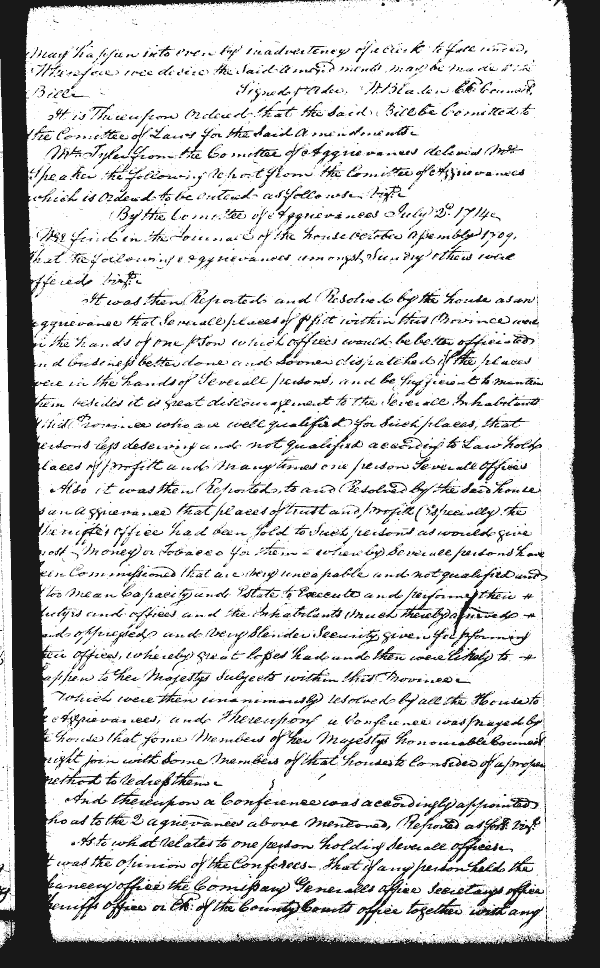 may happen into even by inadvertency of a clerk to fall under,
Wherefore wee desire the Said amendments may be made to the
Bill
Signed p Order. W Bladen Cl Council.
It is Thereupon Ordered that the said Bill be Comitted to
the Comittee of Laws for the Said Amendments.
Mr Tyler from the Comittee of Aggrievances delivers Mr
Speaker the following Report from the Comittee of Aggrievances
which is Ordered to be entered as followse vizt.
By the Comittee of Aggrievances July 2d 1714.
Wee find in the Journal of the house October Assembly 1709.
that the following aggrievances amongst Sundry others were
offered vizt.
It was then Reported and Resolved by the house as an
aggrievance that Severall places of pfitt within this Province were
in the hands of one pson which offices would be better officiated
and business better done and Sooner dispatched if the places
were in the hands of Severall persons, and be Sufficient to maintein
them besides it is great discouragement to the Severall Inhabitants
Province who are well qualified for Such places, that
persons less deserving and not qualified according to Law holds
places of profitt and many times one person Severall offices
Also it was then Reported to and Resolved by the Said house
as an aggrievance that places of trust and profitt (Especially the
Sheriffs office had been Sold to Such persons as would give
most Money or Tobacco for them whereby Severall persons have
been Commissioned that are very uncapable and not qualified and
too mean Capacity and Estate to Execute and performe their
dutys and offices and the Inhabitants much thereby agrieved
and oppressed and very Slender Security given for pforming
their offices, whereby great losses had and then were likely to
happen to her Majestys Subjects within this Province.
Which were then unanimously resolved by all the House to
be Aggrievances, and Thereupon a Conference was prayed by
the house that some Members of her Majestys honourable Councill
might join with Some members of that house to Consider of a proper
method to redress them.
And thereupon a Conference was accordingly appointed
who as to the 2 agrievances above Mentioned, Reported as foll. vizt.
As to what relates to one person holding Severall offices.
It was the opinion of the Conferees. That if any person held the
Chancery office the Comissary Generalls office Secretarys office
Sheriffs office or Clk of the County Courts office together with any